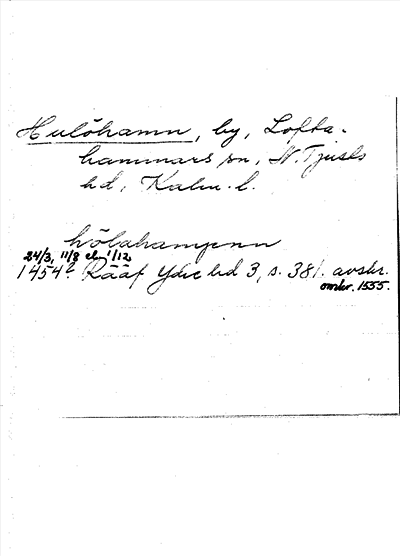 Hulöhamn, by, Lofta-
hammars sn, N. Tjusts
hd, Kalm. l.
hölahampnn
24/3, 11/8 el. 1/12
1454 Rääf Ydre hd 3, s. 381. avskr.
omkr. 1555.